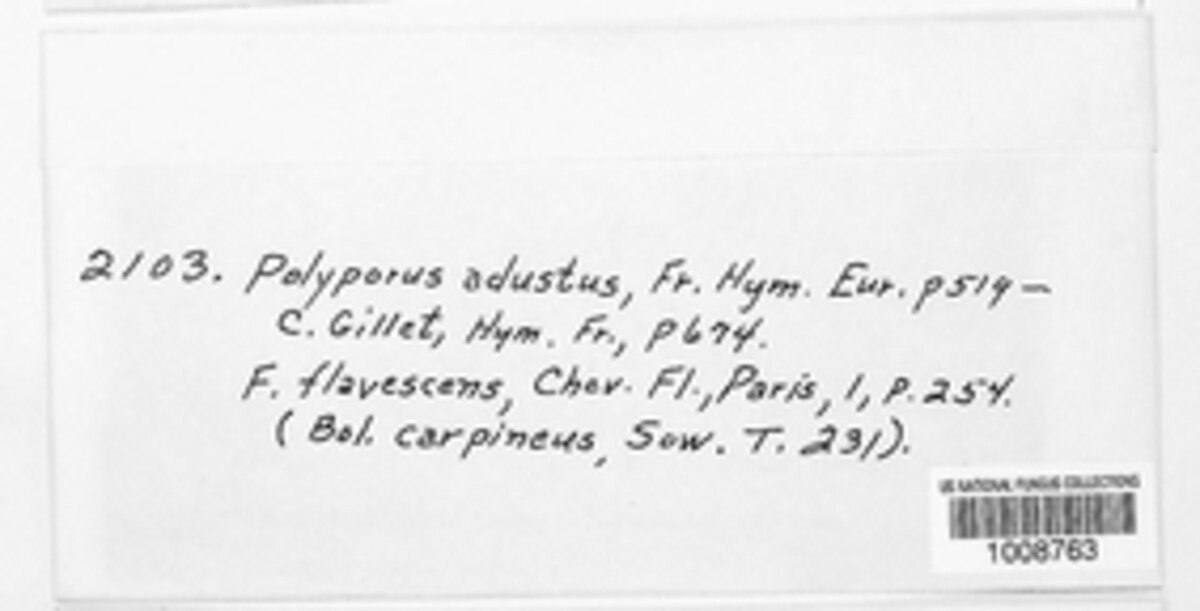 2103. Polyporus adustus, Fr. Hym. Eur. p519 —
C. Gillet, Hym. Fr., p674.
F. flavescens, Chev. Fl., Paris, 1, p. 254.
( Bol. carpineus, Sow. T. 231).
US NATIONAL FUNGUS COLLECTIONS
1008763